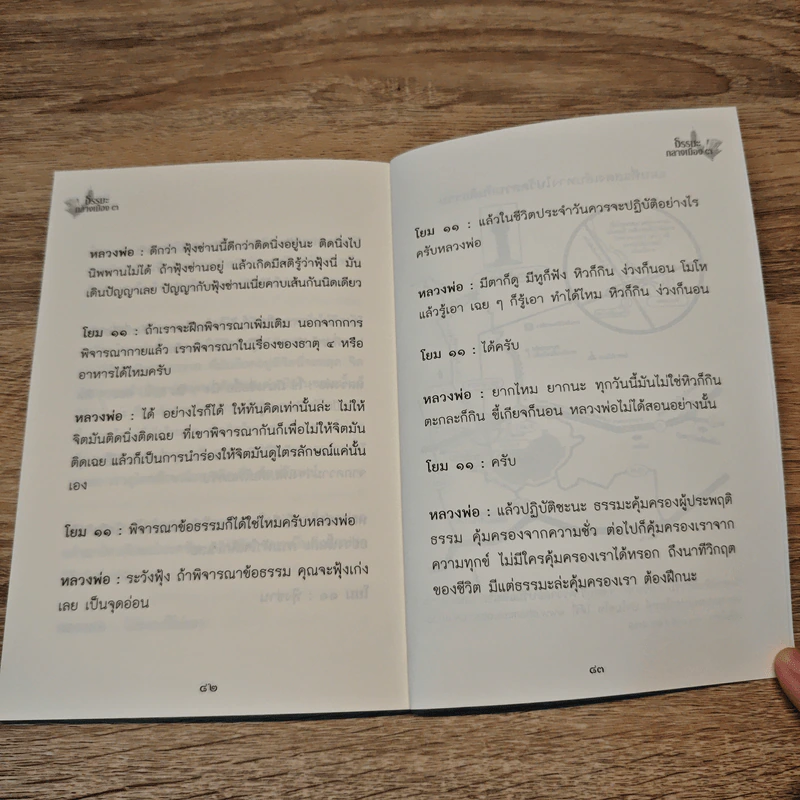 ธรรมะ
กลางเมือง ๓
หลวงพ่อ : ดีกว่า ฟุ้งซ่านนี้ดีกว่าติดนิ่งอยู่นะ ติดนิ่งไป
นิพพานไม่ได้ ถ้าฟุ้งซ่านอยู่ แล้วเกิดมีสติรู้ว่าฟุ้งนี่ มัน
เดินปัญญาเลย ปัญญากับฟุ้งซ่านเนี่ยคาบเส้นกันนิดเดียว
โยม ๑๑ : ถ้าเราจะฝึกพิจารณาเพิ่มเติม นอกจากการ
พิจารณากายแล้ว เราพิจารณาในเรื่องของธาตุ ๔ หรือ
อาหารได้ไหมครับ
หลวงพ่อ : ได้ อย่างไรก็ได้ ให้ทันคิดเท่านั้นล่ะ ไม่ให้
จิตมันติดนิ่งติดเฉย ที่เขาพิจารณากันก็เพื่อไม่ให้จิตมัน
ติดเฉย แล้วก็เป็นการนำร่องให้จิตมันดูไตรลักษณ์แค่นั้น
เอง
โยม ๑๑ : พิจารณาข้อธรรมก็ได้ใช่ไหมครับหลวงพ่อ
หลวงพ่อ : ระวังฟุ้ง ถ้าพิจารณาข้อธรรม คุณจะฟุ้งเก่ง
เลย เป็นจุดอ่อน
๘๒
ธรรมะ
กลางเมือง ๓
โยม ๑๑ : แล้วในชีวิตประจำวันควรจะปฏิบัติอย่างไร
ครับหลวงพ่อ
หลวงพ่อ : มีตาก็ดู มีหูก็ฟัง หิวก็กิน ง่วงก็นอน โมโห
แล้วรู้เอา เฉย ๆ ก็รู้เอา ทำได้ไหม หิวก็กิน ง่วงก็นอน
โยม ๑๑ : ได้ครับ
หลวงพ่อ : ยากไหม ยากนะ ทุกวันนี้มันไม่ใช่หิวก็กิน
ตะกละก็กิน ขี้เกียจก็นอน หลวงพ่อไม่ได้สอนอย่างนั้น
โยม ๑๑ : ครับ
หลวงพ่อ : แล้วปฏิบัติซะนะ ธรรมะคุ้มครองผู้ประพฤติ
ธรรม คุ้มครองจากความชั่ว ต่อไปก็คุ้มครองเราจาก
ความทุกข์ ไม่มีใครคุ้มครองเราได้หรอก ถึงนาทีวิกฤต
ของชีวิต มีแต่ธรรมะล่ะคุ้มครองเรา ต้องฝึกนะ
๘๓